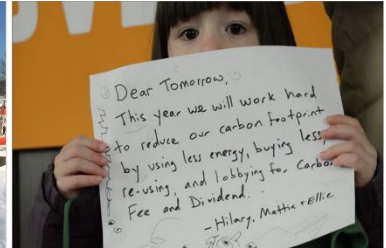 Dear Tomorrow,
This year we will work hard
to reduce our carbon footprint
by using less energy, buying less,
re-using, and lobbying for Carbon
Fee and Dividend.
- Hilary, Mattie + Ellie